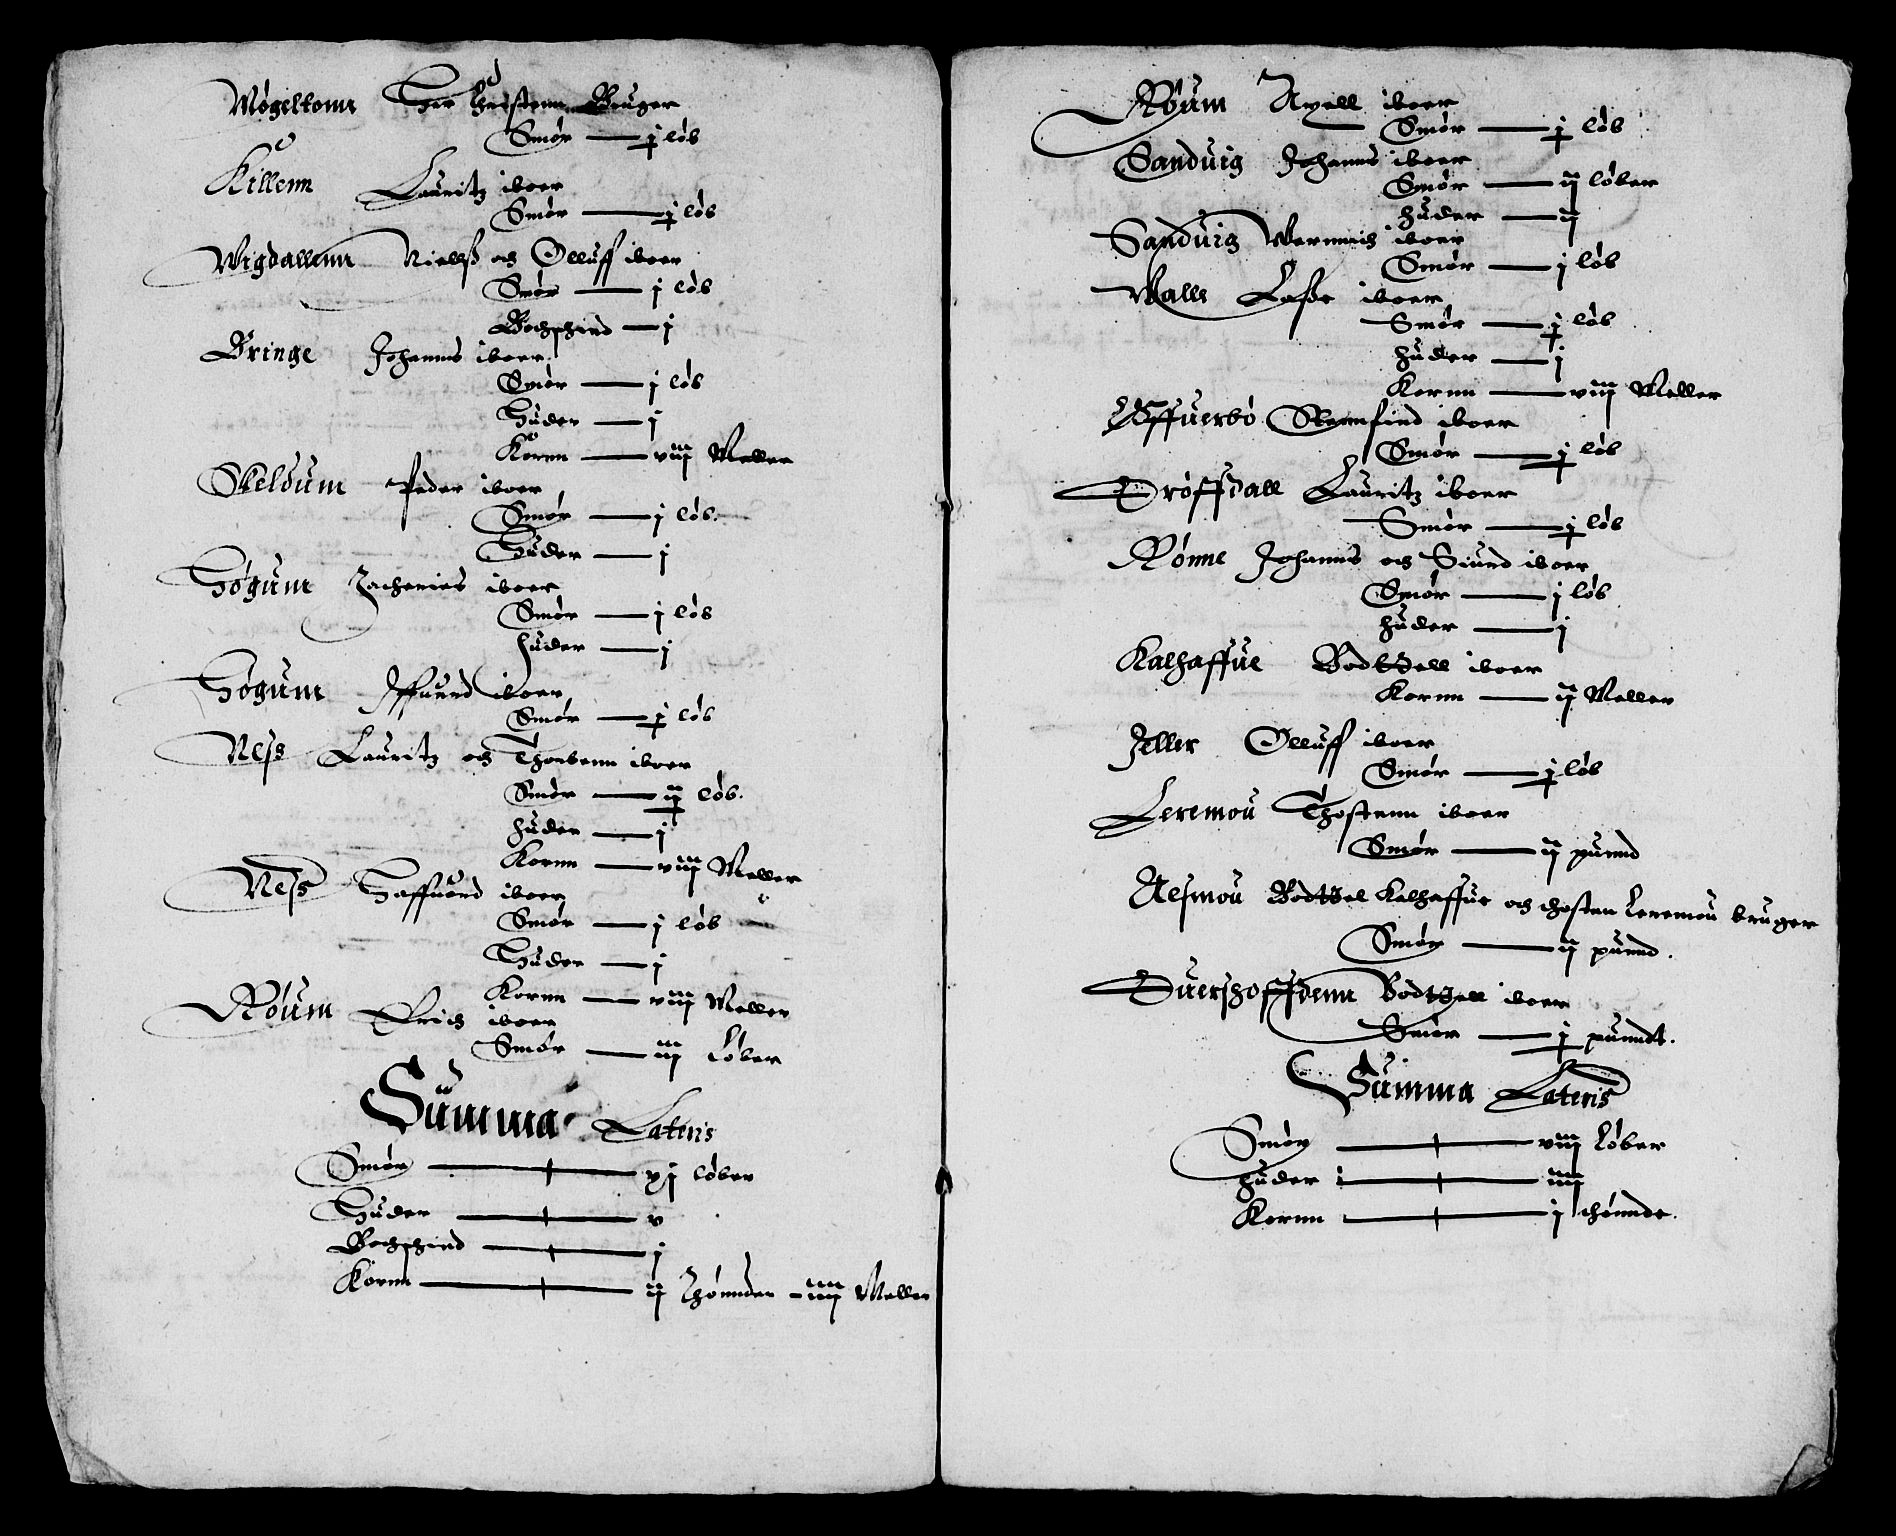 Møgeltonn Her Christenn Bruger
Smør — j løb
Killenn Lauritz iboer
Smør — j løb
Wigdallenn Nielß och Olluff iboer
Smør — j løb
Bochskind — j
Bringe Johanns iboer
Smør — j løb
Huder — j
Kornn — viij Meller
Skeldum Peder iboer
Smør — j løb
Huder — j
Høgum Zacherias iboer
Smør — j løb
huder — j
Høgum Iffuerd iboer
Smør — j løb
Ness Lauritz och Thorbenn iboer
Smør — ij løb
huder — j
Kornn — viij Meller
Ness Haffuord iboer
Smør — j løb
Huder — j
Kornn — viij Meller
Røum Erich iboer
Smør — iij Løber
Summa Lateris
Smør — xj løber
Huder — v
Bochskind — j
Kornn — ij thønnder iiij Meller
Røum Axell iboer
Smør — j løb
Sanduig Johanns iboer
Smør — ij løber
huder — ij
Sanduig Wernnich iboer
Smør — j løb
Walle Laße iboer
Smør — j løb
huder — j
Kornn — viij Meller
Øffuerbø Stennfind iboer
Smør — j løb
Drøffdall Lauritz iboer
Smør — j løb
Rønne Johanns och Siurd iboer
Smør — j løb
huder — j
Kalhaffue Bodtzell iboer
Kornn — ij Meller
Jeller Olluff iboer
Smør — j løb
Leremou Thostenn iboer
Smør — ij punnd
Alsmou Bodtzel Kalhaffue och thosten Leremou bruger
Smør — ij punnd
Duershoffdenn Bodtzell iboer
Smør — j punndt
Summa Lateris
Smør — viij Løber
huder — iiij
Kornn — j thønnde